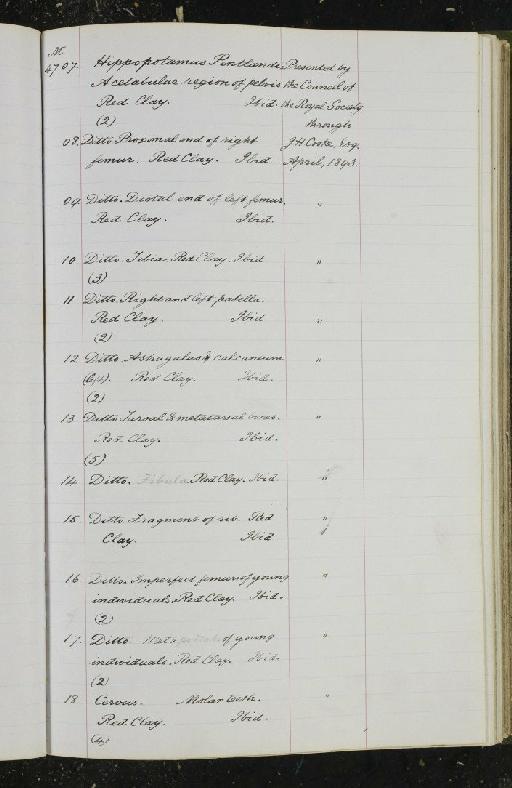 M.
4707. Hippopotamus Pentlandi Presented by
Acetabular region of pelvis the Council of
Red Clay. Ibid. the Royal Society
(2) through
08. Ditto Proximal end of right J H Cooke, Esq.
femur. Red Clay. Ibid April, 1893.
09 Ditto. Distal end of left femur. "
Red Clay. Ibid.
10 Ditto. Tibia. Red Clay. Ibid "
(3)
11 Ditto. Right and left patella.
Red Clay. Ibid "
(2)
12 Ditto. Astragalus & calcaneum "
(left). Red Clay. Ibid.
(2)
13 Ditto Tarsal & metatarsal bones. "
Red Clay. Ibid.
(5)
14 Ditto. Fibula Red Clay. Ibid "
15 Ditto. Fragment of rib. Red "
Clay. Ibid
16 Ditto. Imperfect femur of young "
individuals. Red Clay. Ibid.
(2)
17. Ditto of young "
individuals. Red Clay. Ibid.
(2)
18 Cervus. Molar teeth. "
Red Clay. Ibid.
(4)